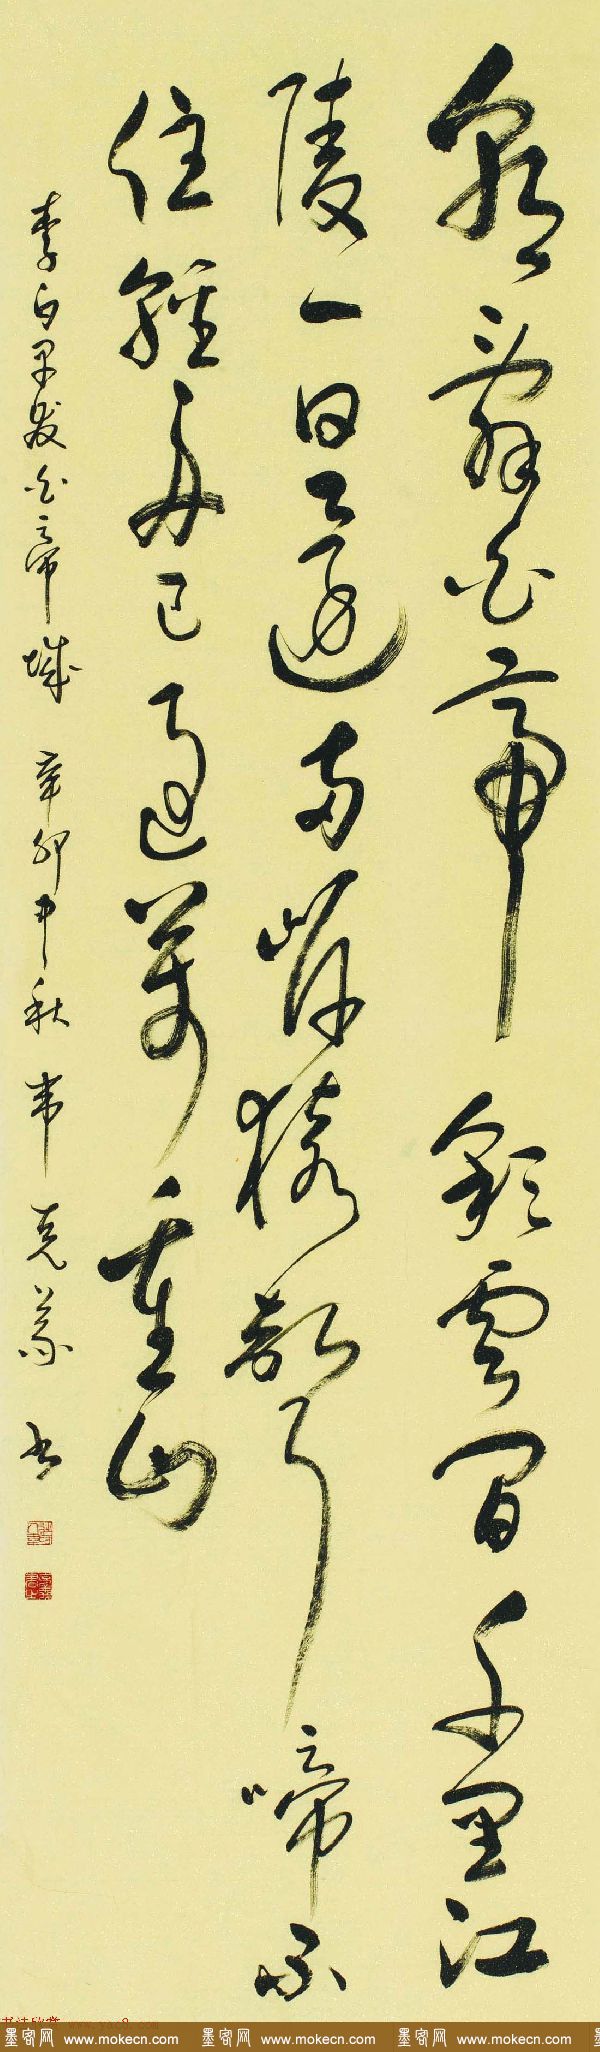 朝辭白帝彩雲間千里江
陵一日還兩岸猿聲啼不
住輕舟已過萬重山
李白早發白帝城 辛卯中秋 韋克義書
墨客网 www.mokecn.com 墨客网 www.mokecn.com 墨客网 www.mokecn.com